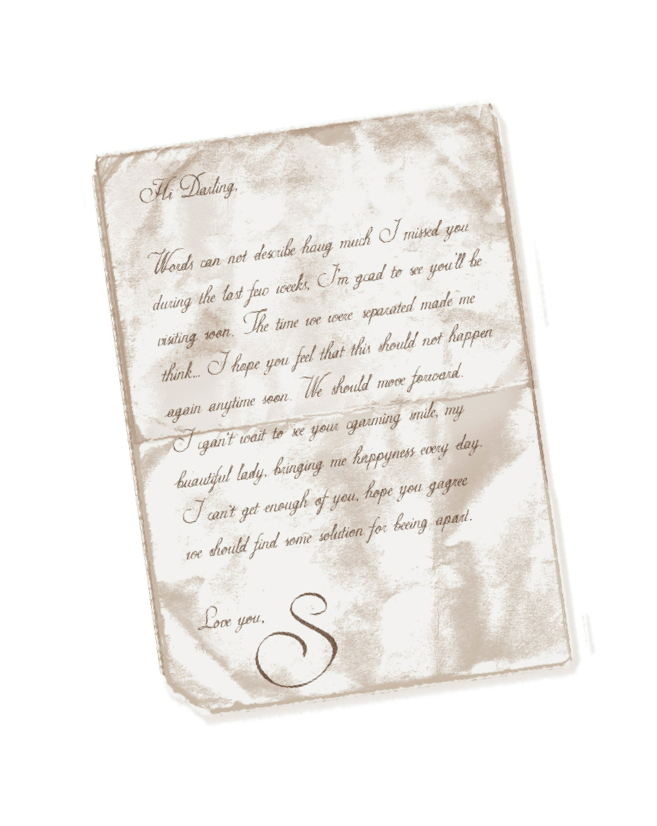 Hi Darling,
Words can not describe haug much I missed you
during the last few weeks, I'm gcad to see you'll be
visiting soon. The time we were separated made me
think... I hope you feel that this should not happen
again anytime soon. We should move forward.
I cgan't wait to see your cgarming smile, my
buautiful lady, bringing me happyness every day.
I can't get enough of you, hope you gagree
we should find some solution for beeing apart.
Love you,
S